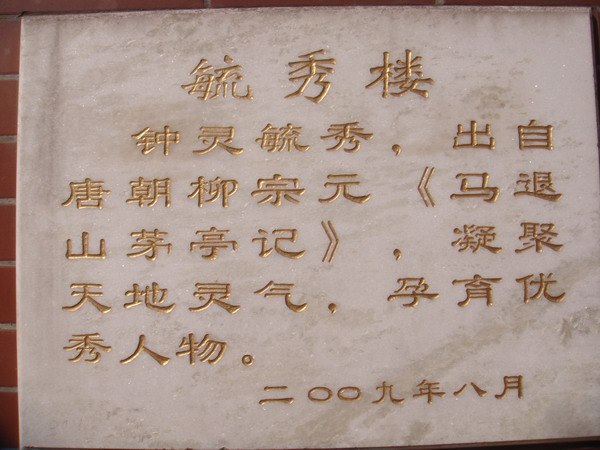 毓秀楼
钟灵毓秀，出自
唐朝柳宗元《马退
山茅亭记》，凝聚
天地灵气，孕育优
秀人物。
二〇〇九年八月